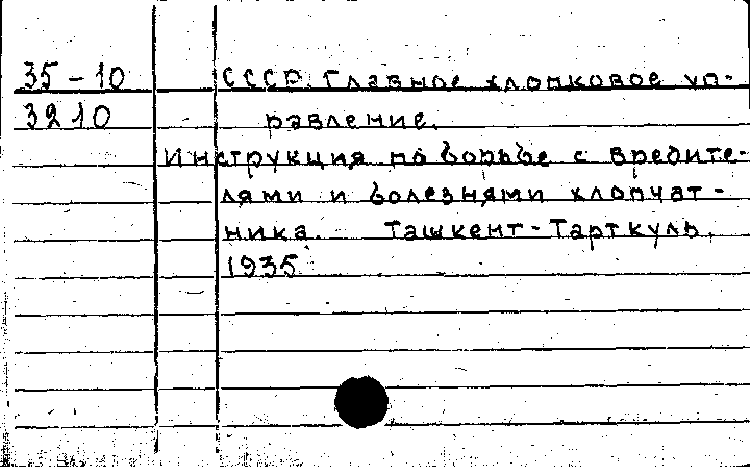 35-10 СССР. Главное хлопковое уп-
3210 равление.
Инструкция по борьбе с вредите-
лями и болезнями хлопчат-
ника. Ташкент-Тарткуль,
1935